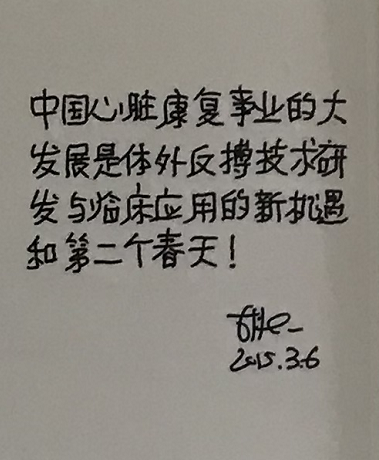 中国心脏康复事业的大
发展是体外反搏技术研
发与临床应用的新机遇
和第二个春天！
2015.3.6